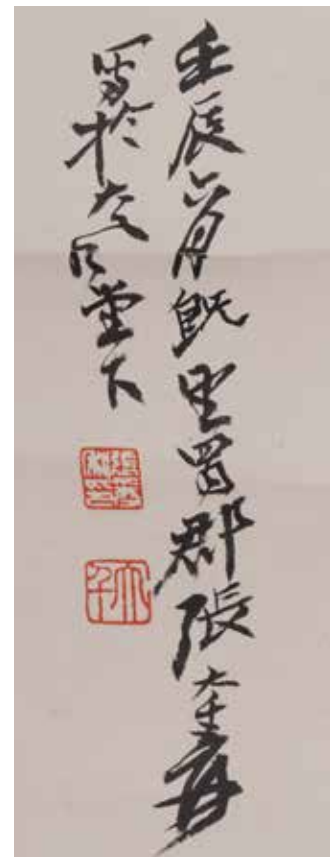 壬辰六月既望蜀郡張大千爰
寫於大風堂下
張爰私印
大千